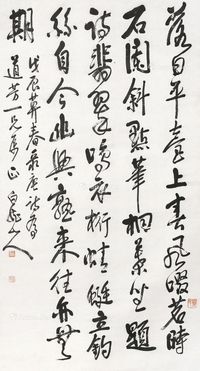 落日平臺上春風啜茗時
石闌斜點筆桐葉坐題
詩翡翠鳴衣桁蜻蜓立釣
絲自今幽興熟來往亦無
期
戊辰莫春录唐詩
道一兄屬正 白龍山人